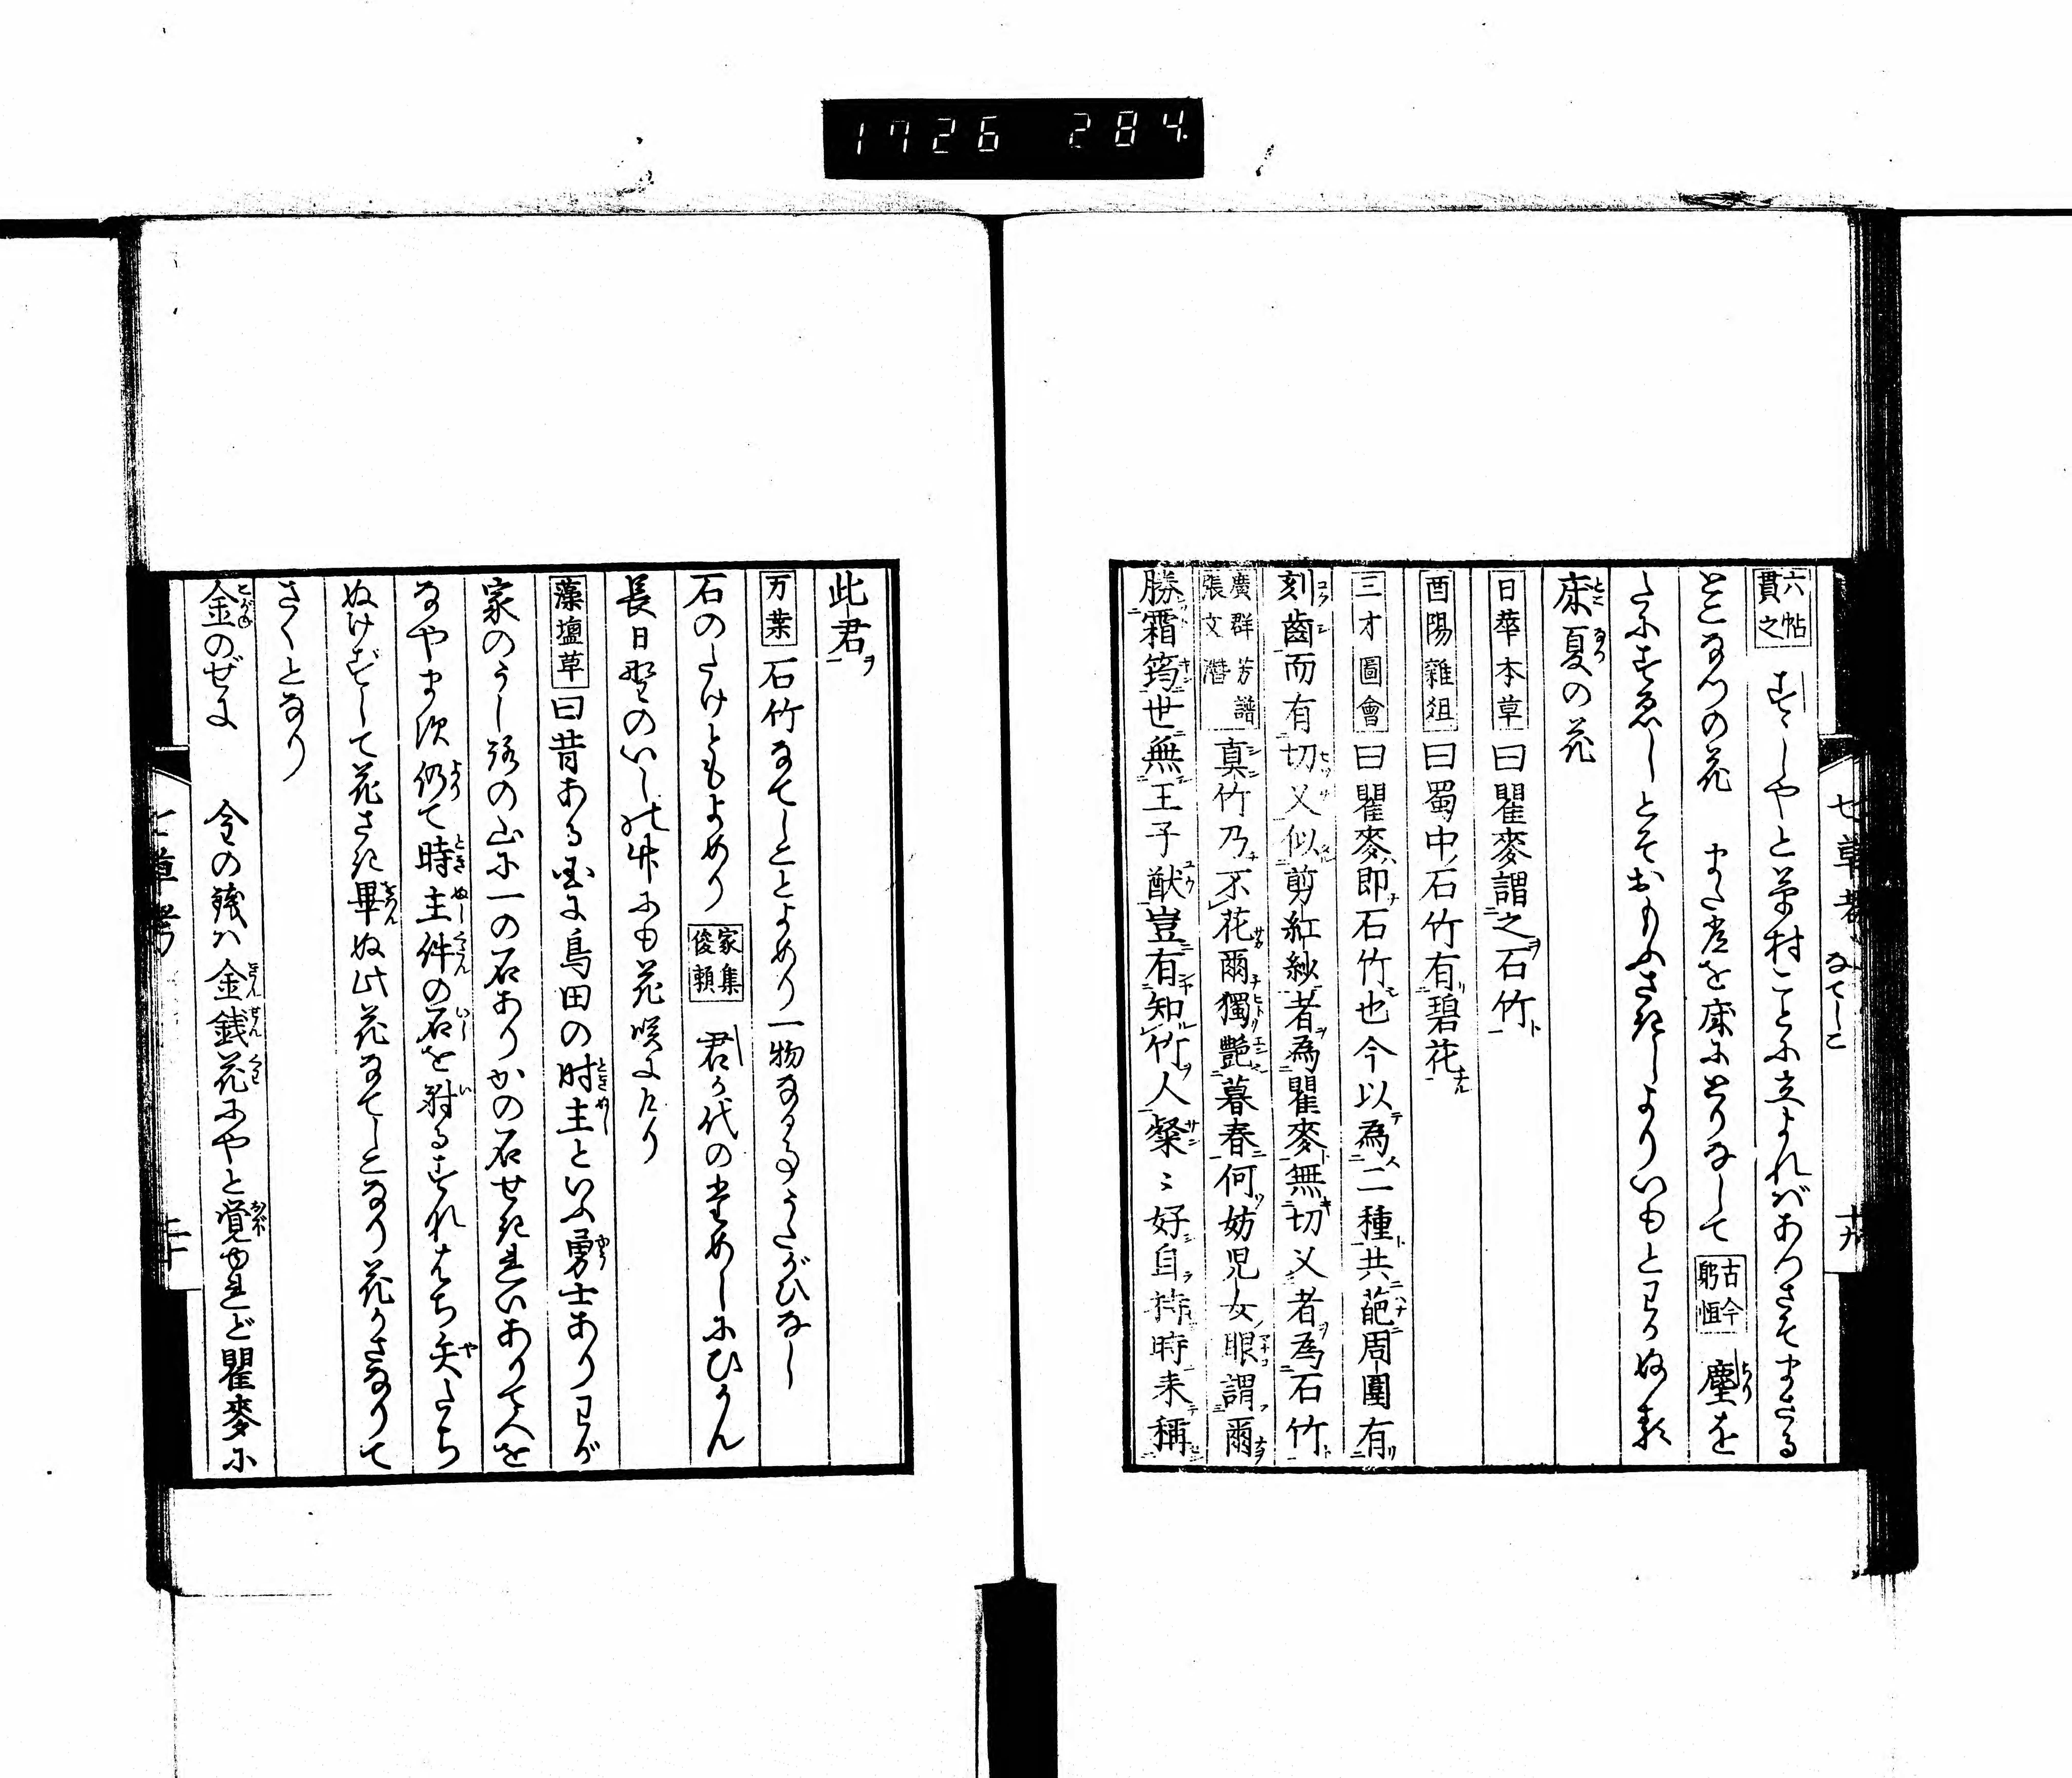 1726 284
七草考 なでしこ 十九
六帖 貫之 すゞしやと草村ことに立よればあつさぞまさる
とこなつの花 また常を床にとりなして 古今 躬恒 塵を
だにすゑじとぞおもふさきしよりいもとわがぬる
床夏の花
日華本草曰瞿麥謂之石竹
酉陽雜俎曰蜀中石竹有碧花
三才圖會曰瞿麥即石竹也今以為二種共葩周圍有
刻齒而有切乂似剪紅紗者為瞿麥無切乂者為石竹
廣群芳譜 張文潛 真竹乃不花爾獨艶暮春何妨児女眼謂爾
勝霜筠世無王子猷豈有知竹人粲〻好自持時来稱
此君
万葉 石竹なでしことよめり一物なる事うたがひなし
石のたけともよめり 家集 俊頼 君が代のためしにひかん
長日野のいしの竹にも花咲にけり
藻塩草曰昔ある国に島田の時主といふ勇士ありわが
家のうしろの山に一の石ありかの石せきれいありて人を
なやます仍て時主件の石を射るすなはち矢たち
ぬけずして花さき畢ぬ此花なでしこなり花かさなりて
さくとなり
金のぜに 金の錢ハ金銭花にやと覚ゆれど瞿麥に
七草考 二十